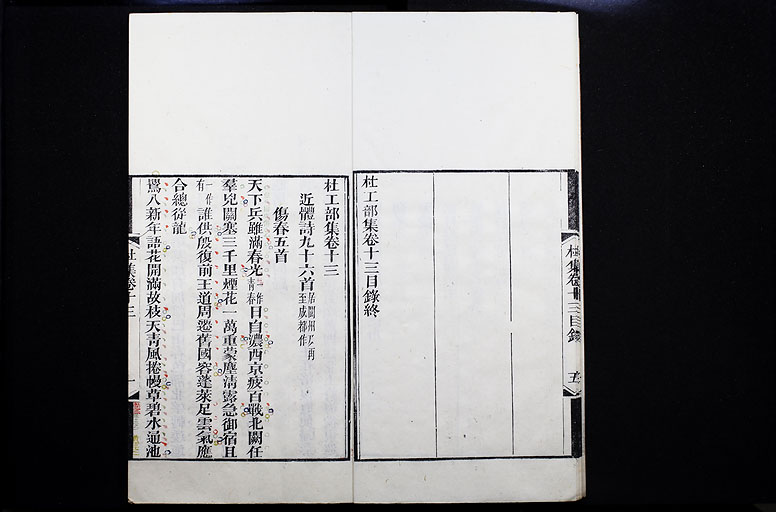 杜工部集卷十三目錄終
杜集卷十三目錄
五
杜工部集卷十三
近體詩九十六首居閬州及再至成都作
傷春五首
天下兵雖滿春光一作青春日自濃西京疲百戰北闕任
羣兇關塞三千里煙花一萬重蒙塵清露急御宿且
一作有誰供殷復前王道周遷舊國容蓬萊足雲氣應
合總從龍
鶯入新年語花開滿故枝天青風捲幔草碧水通池
杜集卷十三
一